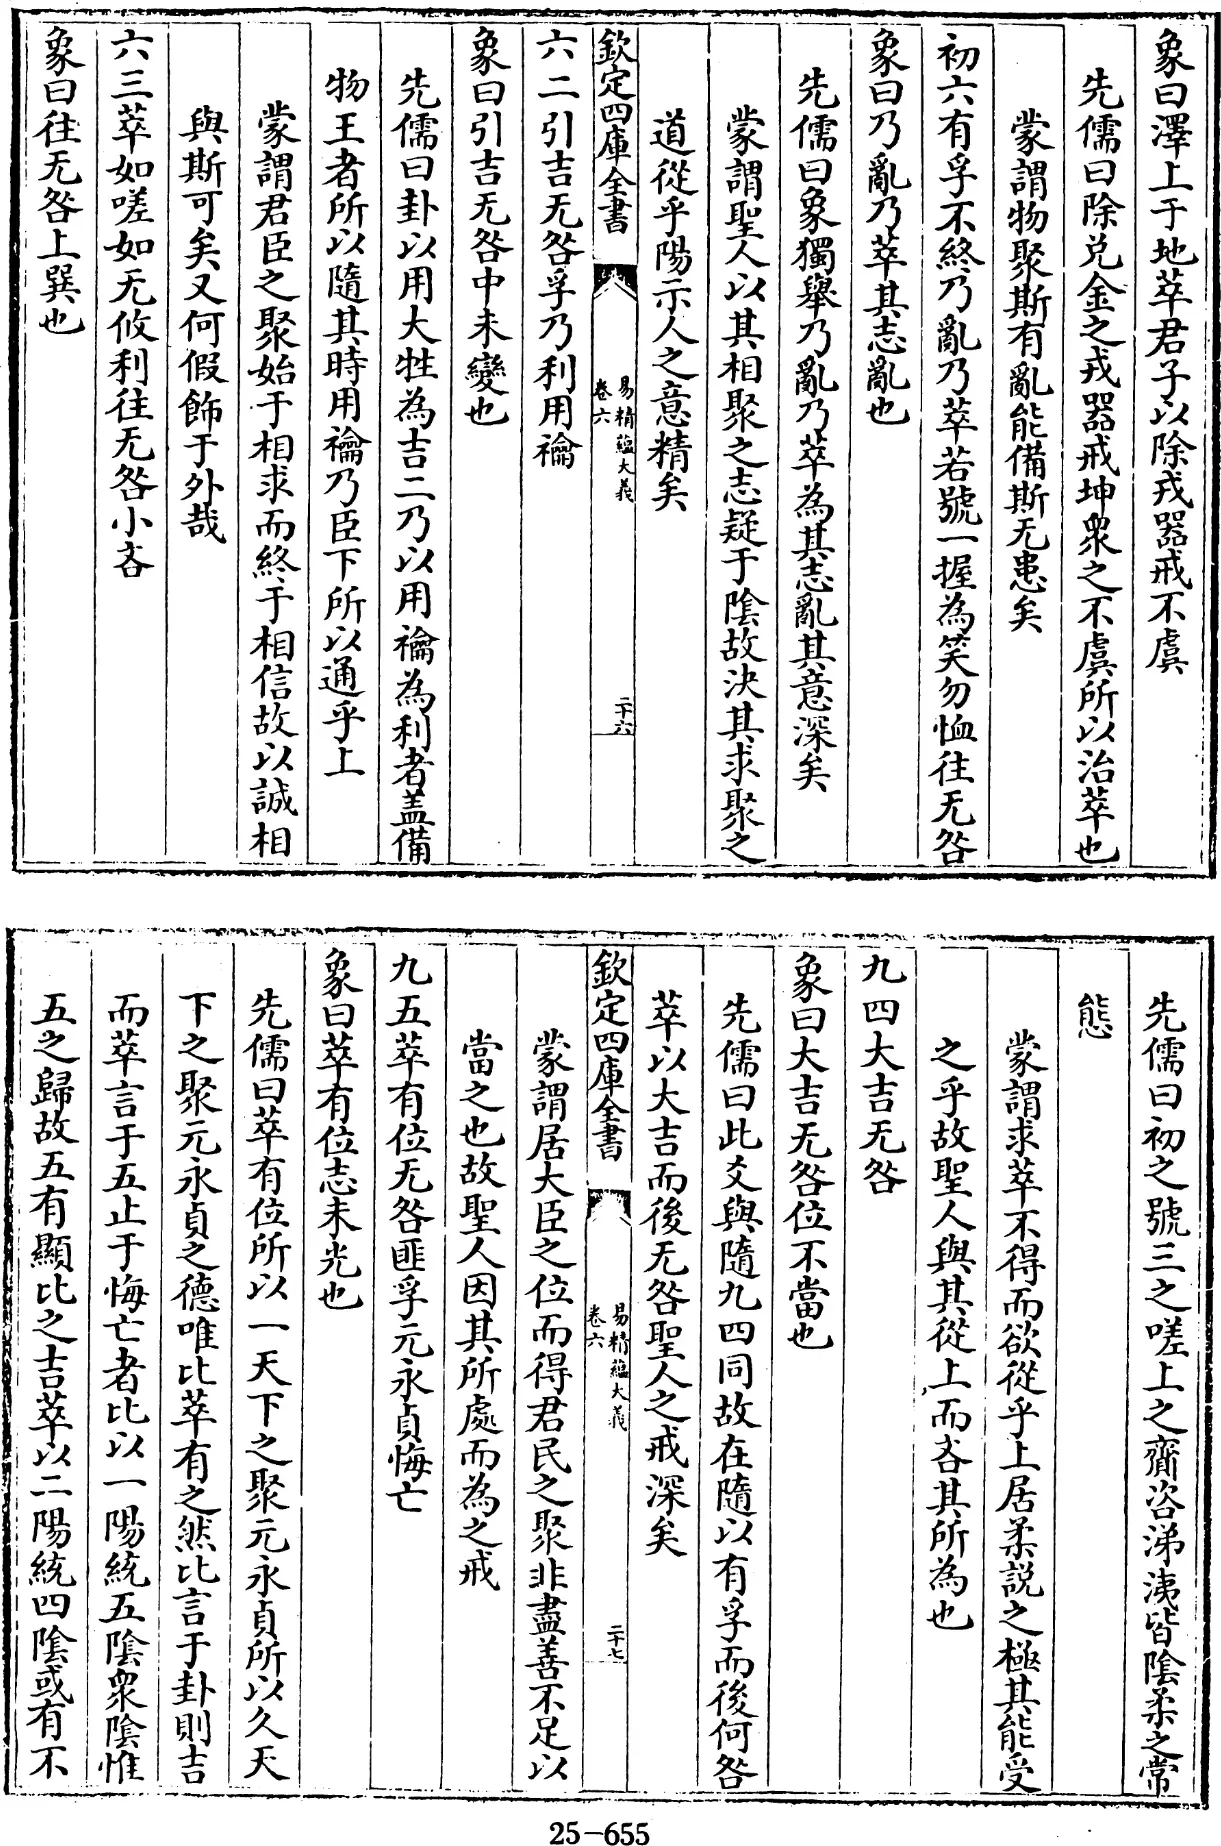 象曰澤上于地萃君子以除戎器戒不虞
先儒曰除兑金之戎器戒坤衆之不虞所以治萃也
蒙謂物聚斯有亂能備斯无患矣
初六有孚不終乃亂乃萃若號一握為笑勿恤往无咎
象曰乃亂乃萃其志亂也
先儒曰象獨舉乃亂乃萃為其志亂其意深矣
蒙謂聖人以其相聚之志疑于陰故決其求聚之
道從乎陽示人之意精矣
欽定四庫全書
易精藴大義
卷六
二十六
六二引吉无咎孚乃利用禴
象曰引吉无咎中未變也
先儒曰卦以用大牲為吉二乃以用禴為利者盖備
物王者所以隨其時用禴乃臣下所以通乎上
蒙謂君臣之聚始于相求而終于相信故以誠相
與斯可矣又何假飾于外哉
六三萃如嗟如无攸利往无咎小吝
象曰往无咎上巽也
先儒曰初之號三之嗟上之齎咨涕洟皆陰柔之常
態
蒙謂求萃不得而欲從乎上居柔説之極其能受
之乎故聖人與其從上而吝其所為也
九四大吉无咎
象曰大吉无咎位不當也
先儒曰此爻與隨九四同故在隨以有孚而後何咎
萃以大吉而後无咎聖人之戒深矣
欽定四庫全書
易精藴大義
卷六
二十七
蒙謂居大臣之位而得君民之聚非盡善不足以
當之也故聖人因其所處而為之戒
九五萃有位无咎匪孚元永貞悔亡
象曰萃有位志未光也
先儒曰萃有位所以一天下之聚元永貞所以久天
下之聚元永貞之德唯比萃有之然比言于卦則吉
而萃言于五止于悔亡者比以一陽統五陰衆陰惟
五之歸故五有顯比之吉萃以二陽統四陰或有不
25-655